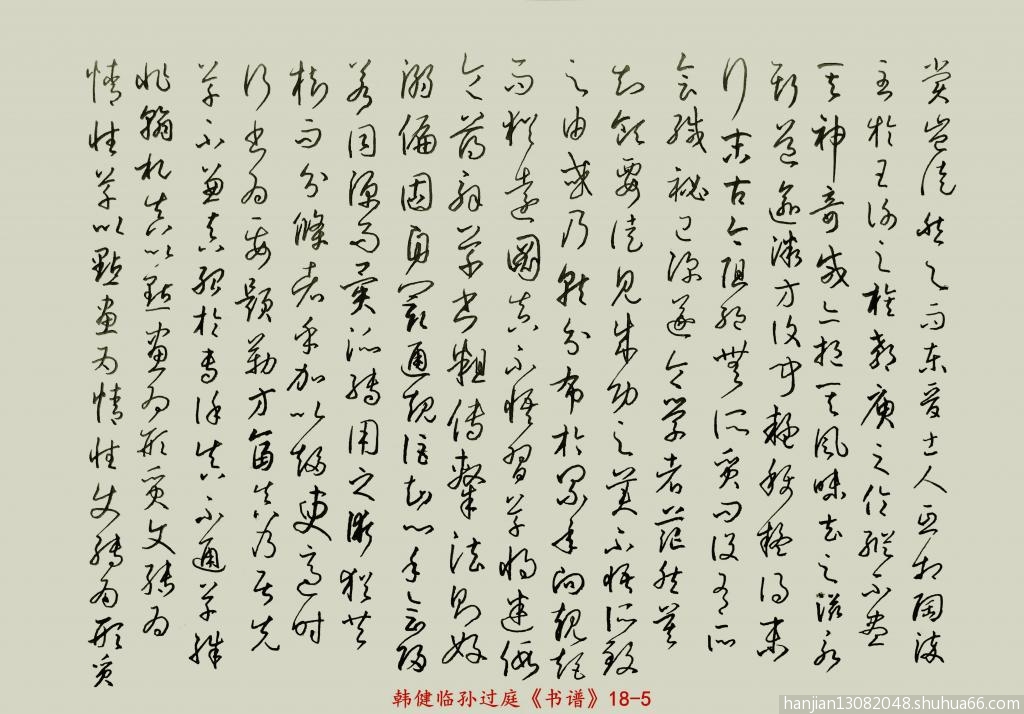 賞豈徒然與而東晉士人互相陶染
至於王謝之族郗庾之倫縱不盡
其神奇咸亦挹其風味去之滋永
斯道逾微方復聞疑稱疑得末
行末古今阻絕無所質問設有所
會緘秘已深遂令學者茫然莫
知領要徒見成功之美不悟所致
之由或乃就分布於累年向規矩
而猶遠圖真不悟習草將迷假
令薄解草書粗傳隸法則好
溺偏固自閡通規詎知心手會歸
若同源而異派轉用之術猶共
樹而分條者乎加以趨變適時
行書為要題勒方畐真乃居先
草不兼真殆於專謹真不通草殊
非翰札真以點畫為形質使轉為
情性草以點畫為情性使轉為形質
韩健临孙过庭《书谱》18-5
hanjian13082048.shuhua66.com